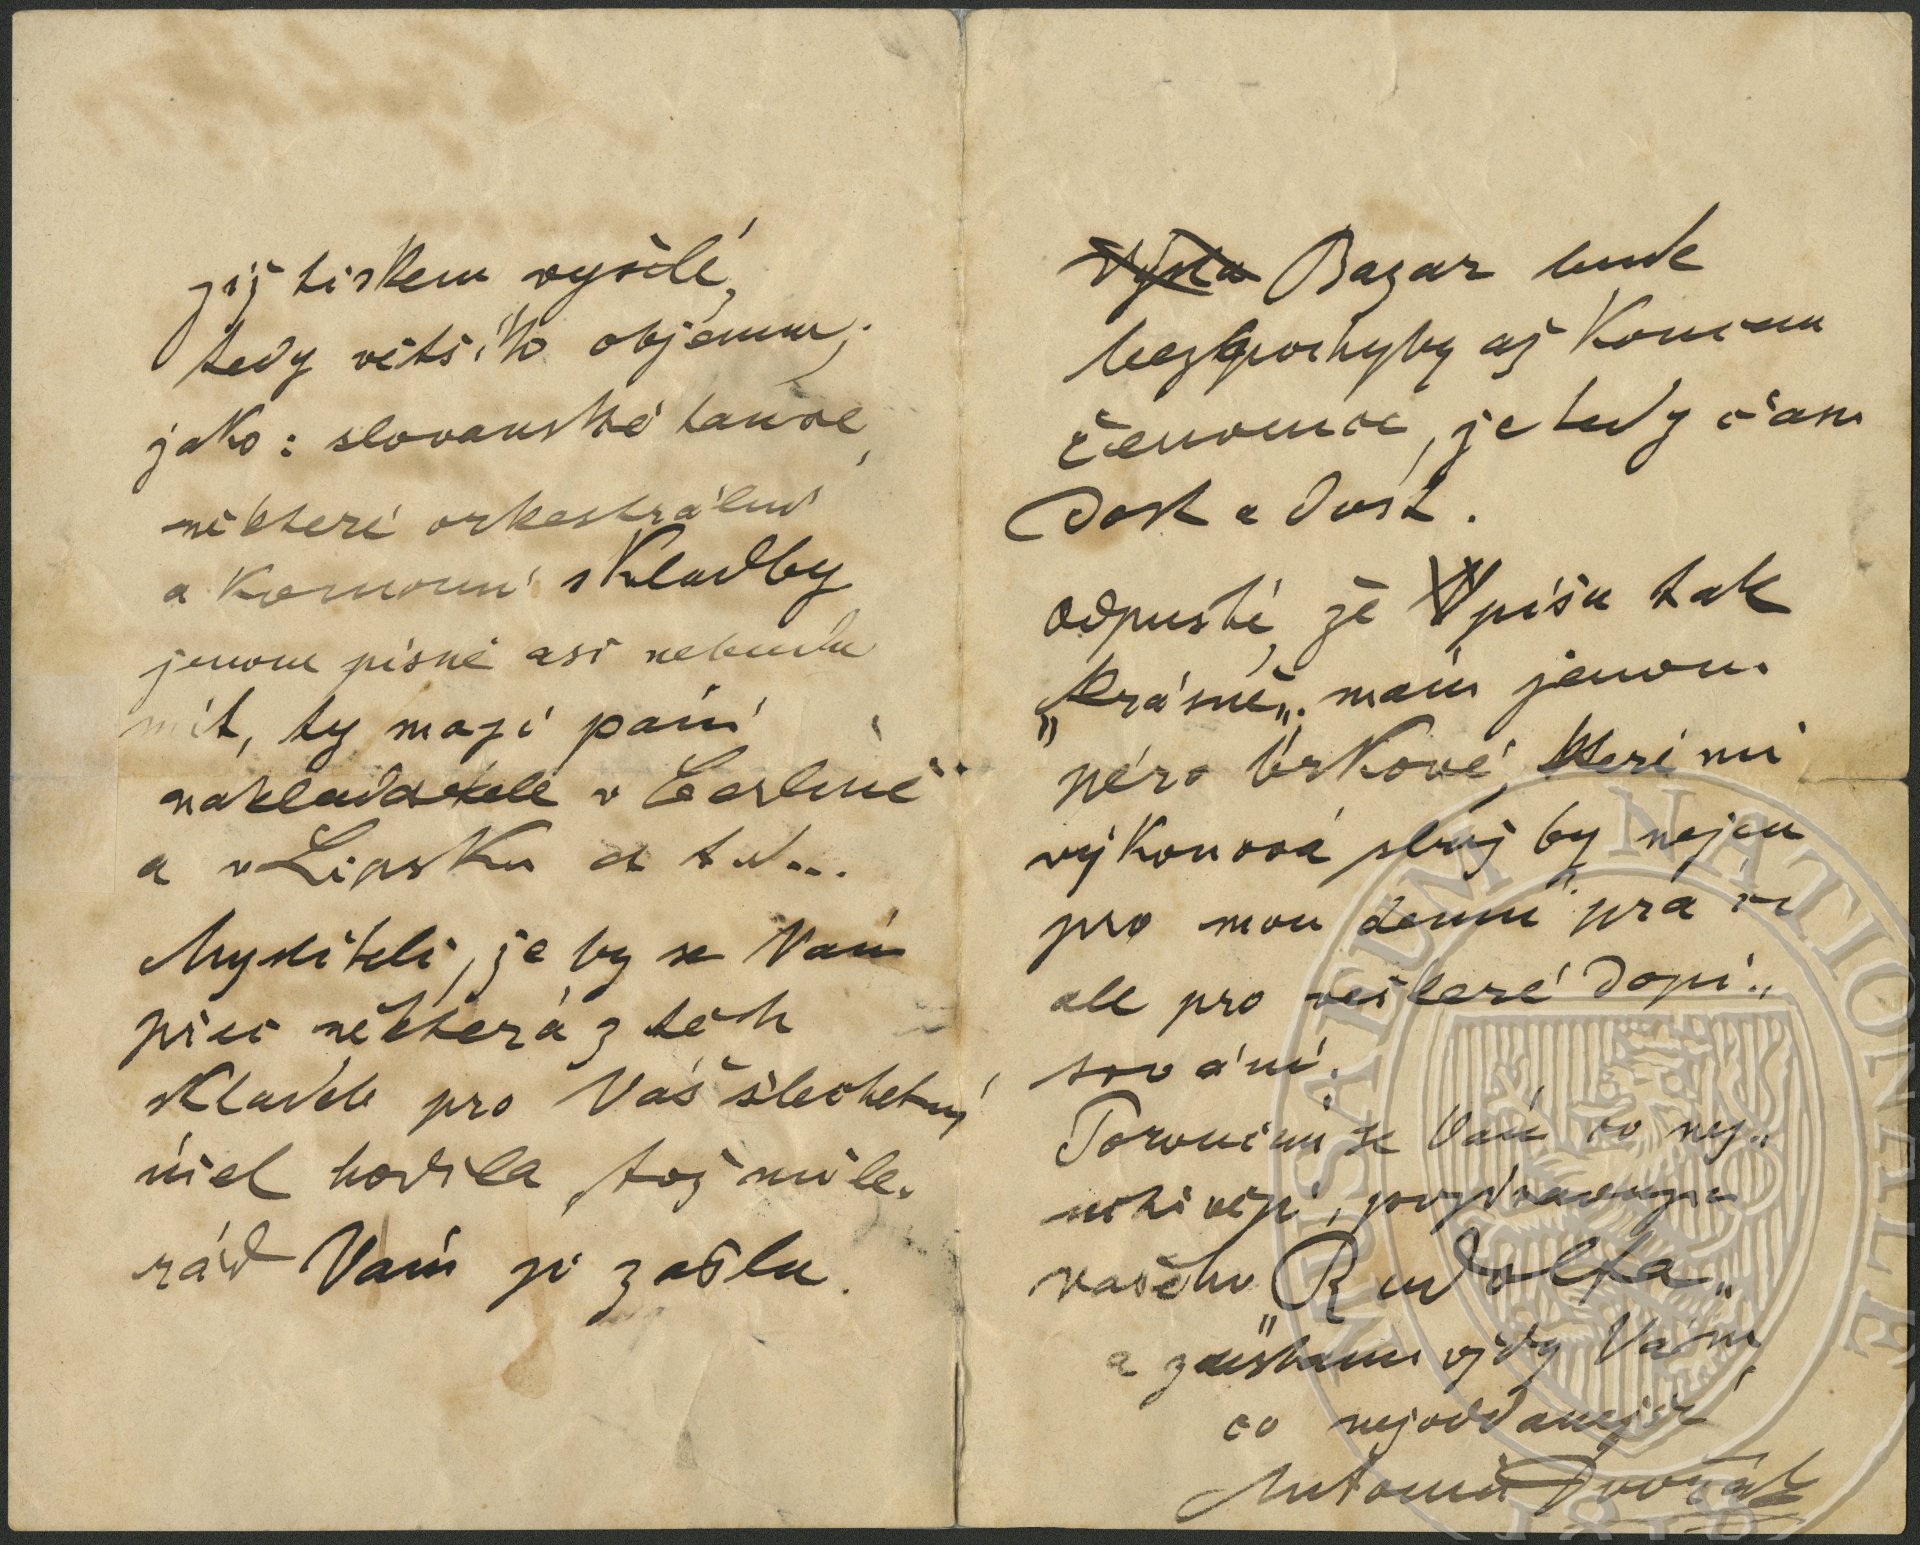 již tiskem vyšlé,
tedy většího objemu;
jako: slovanské tance,
některé orkestrální
a komorní skladby
jenom písně asi nebudu
mít, ty mají páni
nakladatelé v Berlíně
a v Lipsku a t.d...
Myslíteli, že by se Vám
přec některá z těch
skladeb pro Váš šlechetný
účel hodila, tož milerád
Vám ji zašlu.
Bazar bude
bezpochyby až koncem
července, je tedy času
dost a dost.
Odpusťe, že píšu tak
„krásně„. mám jenom
péro brkové, které mi
výkonová služby nejen
pro mou denní práci
ale pro veškeré dopi„
sování.
Poroučím se Vám co nej„
uctivěji, pozdravuje
vašeho „Rudolfa„
a zůstanu vždy Vám
co nejoddanější
Antonín Dvořák
MUSAEUM NATIONALE
1818